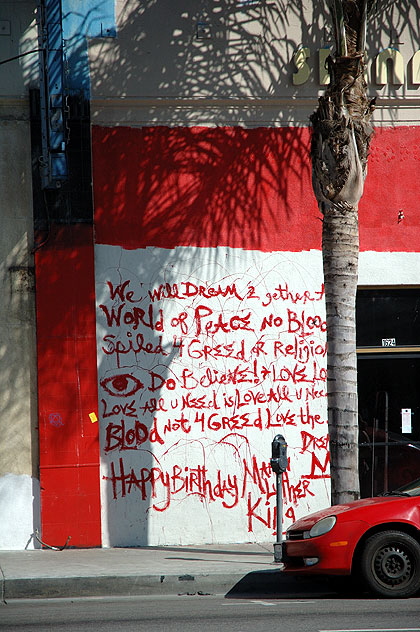 We Will DREAM 2 gether
WORLD of PEACE NO BLOOD
Spiled 4 GREED or RELIGION
Do BeLieve! LOVE
LOVE ALL u NEED is LOVE ALL u NEE
BLOOD NOT 4 GREED LOVE the
HAPPY BIRTHDAY
King